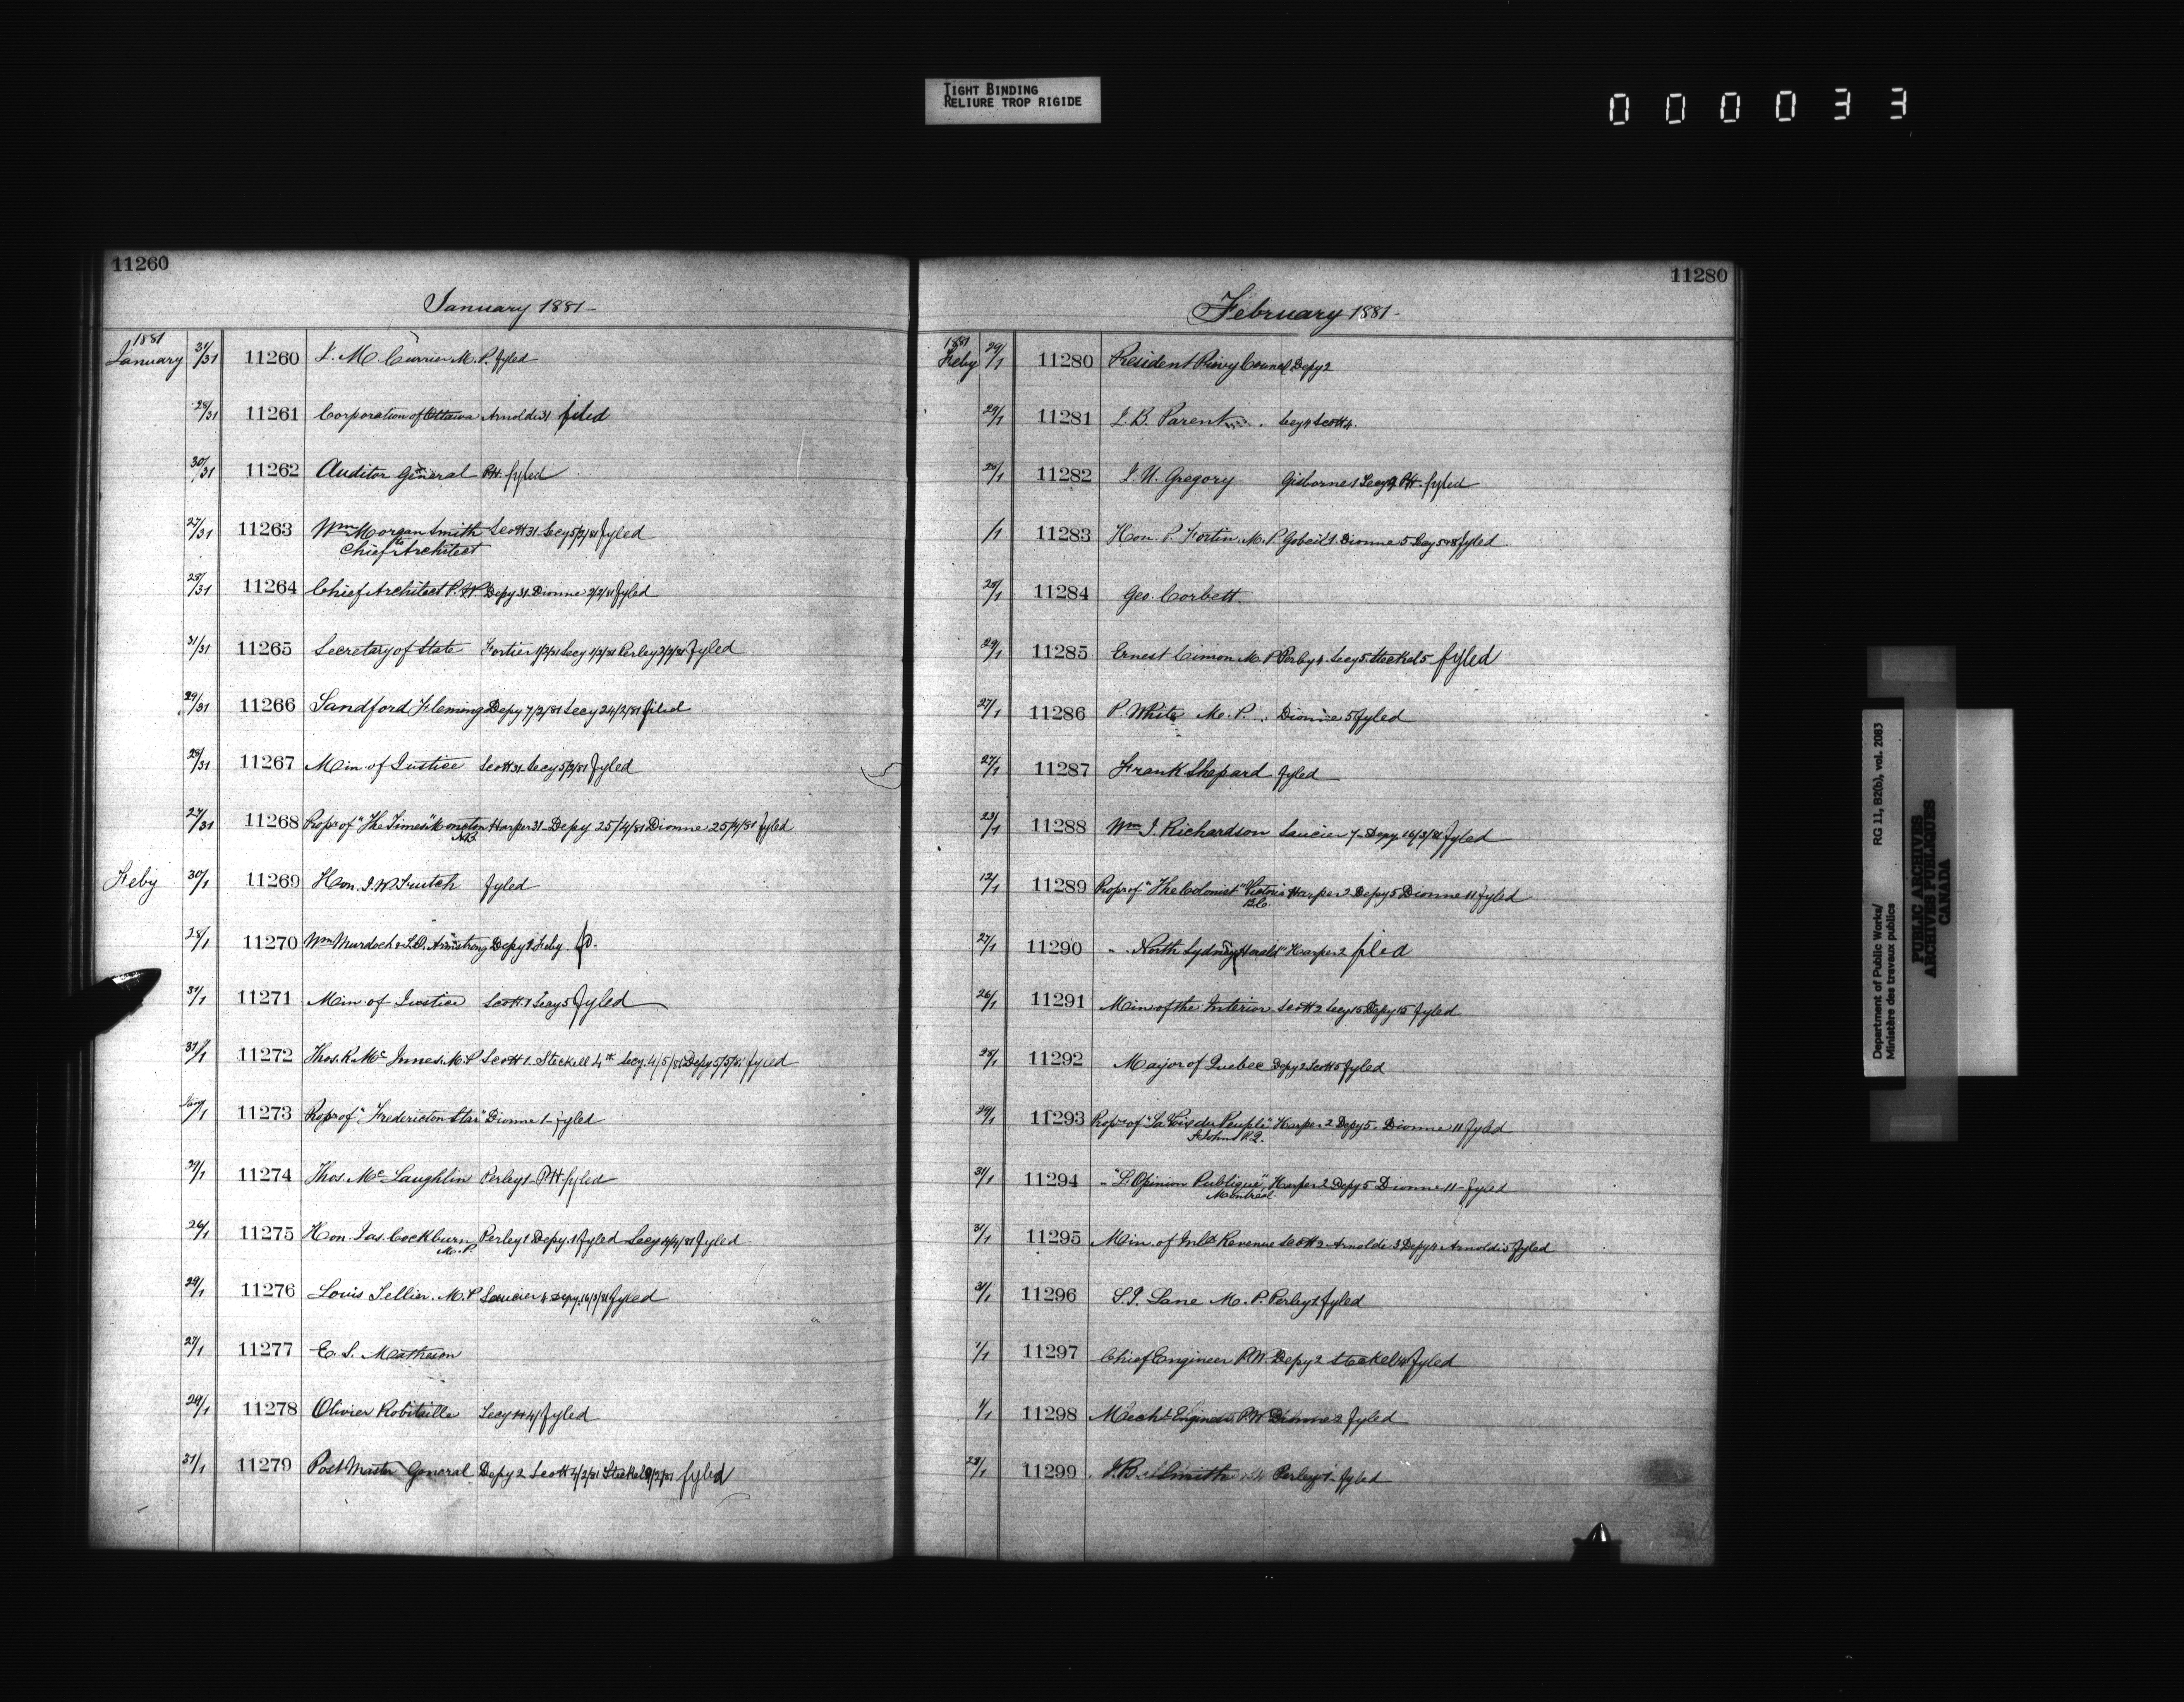 TIGHT BINDING
RELIURE TROP RIGIDE
000033
11260
January 1881-
1881
January 31/31 11260 J. M. Currier M.P. fyled
28/31 11261 Corporation of Ottawa Arnoldi 31 filed
30/31 11262 Auditor General P.H. fyled
27/31 11263 Wm Morgan Smith Scott 31 Secy 5/2/81 fyled
to Chief Architect
28/31 11264 Chief Architect P.W Depy 31 Dionne 2/2/81 fyled
31/31 11265 Secretary of State Fortier 1/2/81 Secy 1/2/81 Perley 3/2/81 fyled
29/31 11266 Sandford Fleming Depy 7/2/81 Secy 24/2/81 filed
28/31 11267 Min of Justice Scott 31 Secy 5/2/81 fyled
27/31 11268 Propr of "The Times" Moncton Harper 31 - Depy 25/4/81 Dionne 25/4/81 fyled
N.B.
Feby 30/1 11269 Hon. J. W Trutch fyled
28/1 11270 Wm Murdoch & L.O. Armstrong Depy 2 Feby
31/1 11271 Min of Justice Scott 1 Secy 5 fyled
31/1 11272 Thos. R. Mc Innes. M.P Scott 1. Steckel 4th Secy. 4/5/81 Depy 5/5/81 fyled
11273 Propr of "Fredericton Star" Dionne 1- fyled
29/1 11274 Thos. Mc Laughlin Perley 1- P.H fyled
26/1 11275 Hon. Jas. Cockburn Perley 1 Depy 1 fyled Secy 4/4/81 fyled
M.P.
29/1 11276 Louis Tellier. M.P Saucier 4 Depy 16/3/81 fyled
27/1 11277 E. S. Matheson
29/1 11278 Olivier Robitaille Secy fyled
31/1 11279 Post Master General Depy 2 Scott 4/2/81 Steckel 9/2/81 fyled
11280
February 1881-
1881
Feby 29/1 11280 President Privy Council Depy 2
29/1 11281 J. B. Parent Secy 4 Scott 4.
28/1 11282 J. U. Gregory Gisborne 1 Secy P.H. fyled
/1 11283 Hon. P. Fortin. M.P. Gobeil 1. Dionne 5 Secy fyled
28/1 11284 Geo. Corbett.
29/1 11285 Ernest Cimon M.P Perley 4. Secy 5. Steckel 5 fyled
27/1 11286 P. White M.P. Dionne 5 fyled
27/1 11287 Frank Shepard fyled
23/1 11288 Wm J. Richardson Saucier 7- Depy 16/3/81 fyled
12/1 11289 Propr of "The Colonist" Victoria Harper 2 Depy 5 Dionne 11 fyled
B.C.
27/1 11290 " North Sydney Herald" Harper 2 filed
26/1 11291 Min of the Interior. Scott 2 Secy 15 Depy 15 fyled
28/1 11292 Mayor of Quebec Depy 2 Scott 5 fyled
29/1 11293 Propr of "La Voix du Peuple" Harper 2 Depy 5. Dionne 11 fyled
St Johns P.Q.
31/1 11294 " "L'Opinion Publique" Harper 2 Depy 5 Dionne 11- fyled
Montreal.
31/1 11295 Min. of Inld Revenue Scott 2 Arnoldi 3 Depy 4 Arnoldi 5 fyled
31/1 11296 S. J. Lane M.P. Perley 2 fyled
1/1 11297 Chief Engineer P.W. Depy 2 Steckel fyled
1/1 11298 Mechl Engineer P.W Dionne 2 fyled
28/1 11299 J. B. Smith Perley 1- fyled
Department of Public Works/ RG 11, B2(b), vol. 2083
Ministère des travaux publics
PUBLIC ARCHIVES
ARCHIVES PUBLIQUES
CANADA